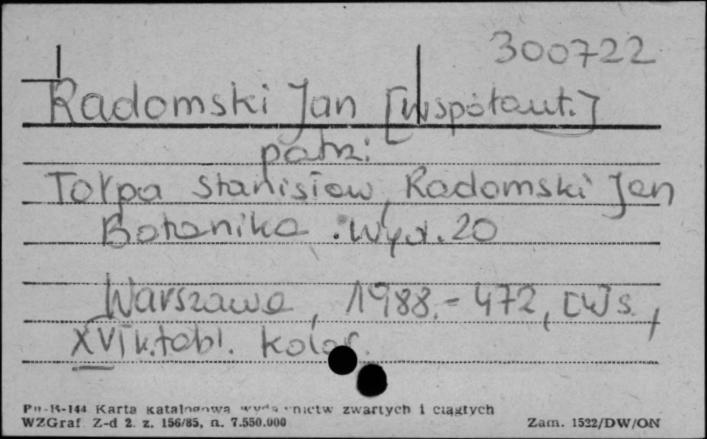 300722
Radomski Jan [współaut.]
patrz:
Tołpa Stanisław, Radomski Jan
Botanika. Wyd. 20
Warszawa, 1988. - 472, [4] s.,
XVI k. tabl. kolor.
Pu-B-144 Karta katalogowa wydawnictw zwartych i ciągłych
WZGraf. Z-d 2. z. 156/85, n. 7.550.000
Zam. 1522/DW/ON